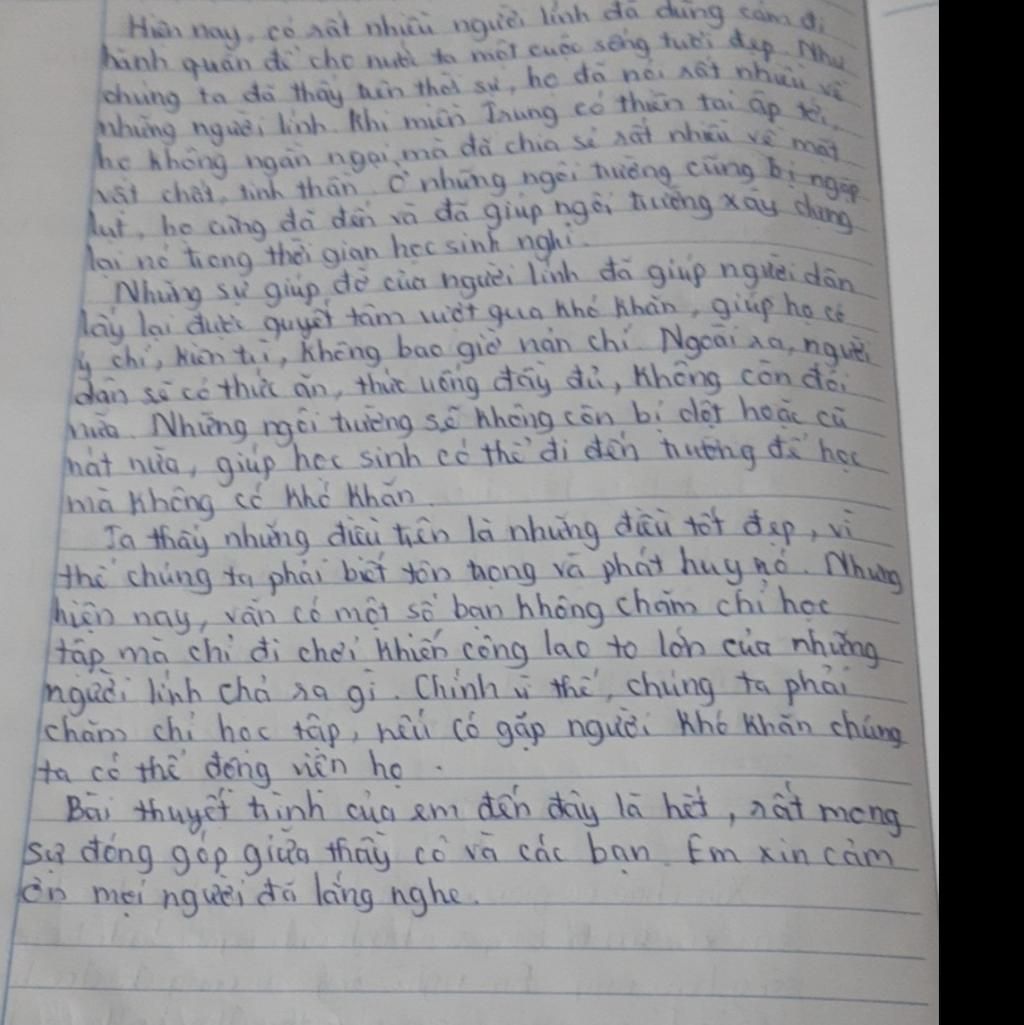 Hiện nay, có rất nhiều người lính đã dũng cảm đi
hành quân để cho nước ta một cuộc sống tươi đẹp. Như
chúng ta đã thấy trên thời sự, họ đã nói rất nhiều về
những người lính. Khi miền Trung có thiên tai ập tới,
họ không ngần ngại mà đã chia sẻ rất nhiều về mặt
vật chất, tinh thần. Ở những ngôi trường cũng bị ngập
lụt, họ cũng đã đến và đã giúp ngôi trường xây dựng
lại nó trong thời gian học sinh nghỉ.
Những sự giúp đỡ của người lính đã giúp người dân
lấy lại được quyết tâm vượt qua khó khăn, giúp họ có
ý chí, kiên trì, không bao giờ nản chí. Ngoài ra, người
dân sẽ có thức ăn, thức uống đầy đủ, không còn đói
nữa. Những ngôi trường sẽ không còn bị dột hoặc cũ
nát nữa, giúp học sinh có thể đi đến trường để học
mà không có khó khăn.
Ta thấy những điều trên là những điều tốt đẹp, vì
thế chúng ta phải biết tôn trọng và phát huy nó. Nhưng
hiện nay, vẫn có một số bạn không chăm chỉ học
tập mà chỉ đi chơi khiến công lao to lớn của những
người lính chả ra gì. Chính vì thế, chúng ta phải
chăm chỉ học tập, nếu có gặp người khó khăn chúng
ta có thể động viên họ.
Bài thuyết trình của em đến đây là hết, rất mong
sự đóng góp giữa thầy cô và các bạn. Em xin cảm
ơn mọi người đã lắng nghe.